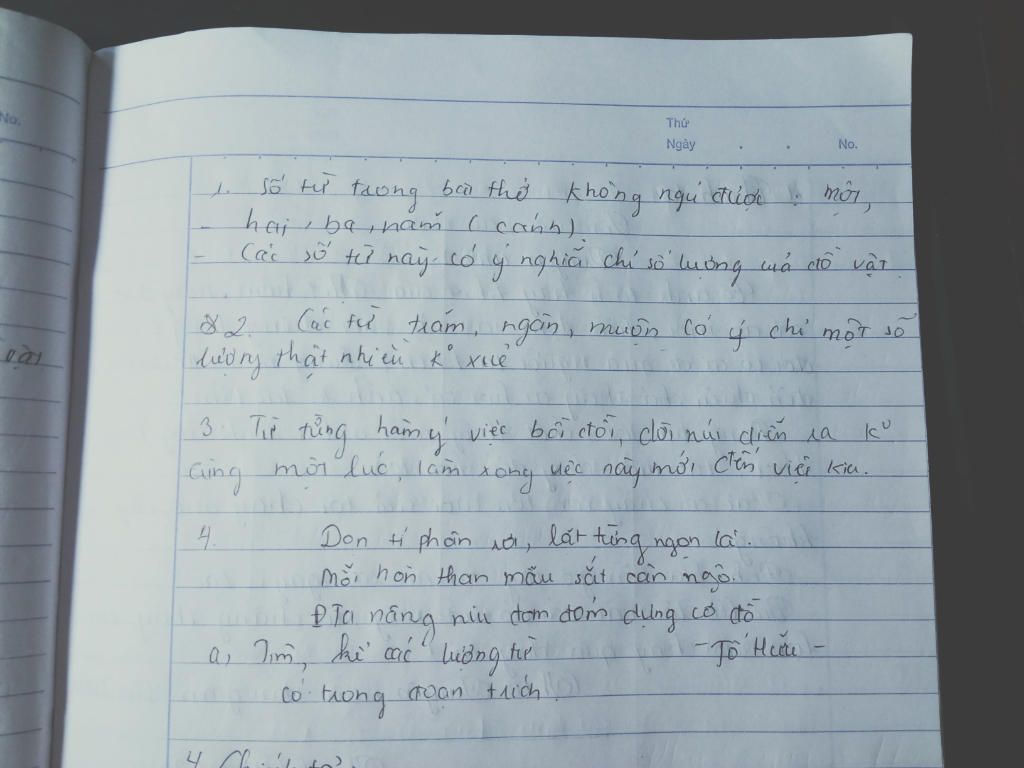 No.
Thứ
Ngày . . No.
1. Số từ trong bài thơ không ngủ được : một,
- hai, ba, năm (cánh)
- Các số từ này có ý nghĩa chỉ số lượng của đồ vật.
2. Các từ trăm, ngàn, muôn có ý chỉ một số
lượng thật nhiều k° xuể
3. Từ từng hàm ý việc bồi đồi, dời núi diễn ra k°
cùng một lúc, làm xong việc này mới đến việc kia.
4. Dọn tí phân rơi, lát từng ngọn lá.
Mỗi hòn than mẫu sắt cân ngô.
Ta nâng niu dom dóm dựng cơ đồ
a, Tìm, kể các lượng từ - Tố Hữu -
có trong đoạn trích.